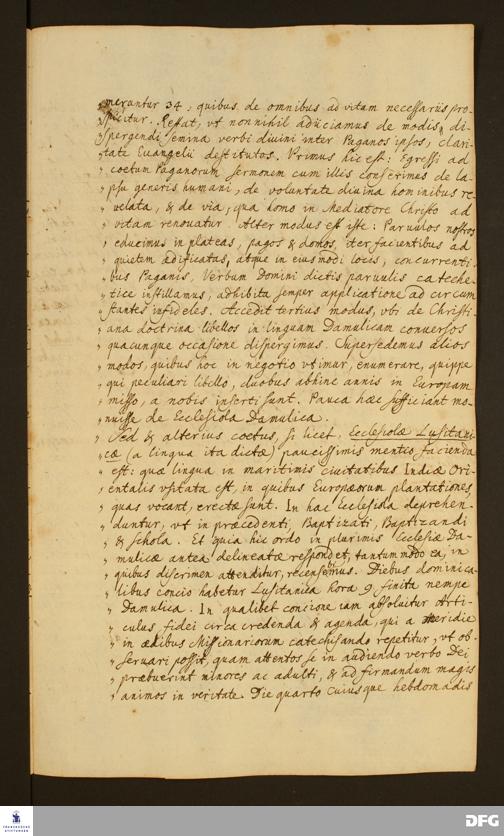 „merantur 34: quibus de omnibus ad vitam necessariis pro-
„spicitur. Restat, vt nonnihil adiiciamus de modis, di-
„spergendi semina verbi divini inter Paganos ipsos, clari-
„tate Euangelii destitutos. Primus hic est: Egressi ad
„coetum Paganorum sermonem cum illis conserimus de la-
„psu generis humani, de voluntate divina hominibus re-
„uelata, & de via, qua homo in Mediatore Christo ad
„vitam renouatur. Alter modus est iste: Paruulos nostros
„educimus in plateas, pagos & domos, iter facientibus ad
„quietem ædificatas, atque in eiusmodi locis, concurrenti-
„bus Paganis, Verbum Domini dictis paruulis cateche-
„tice instillamus, adhibita semper applicatione ad circum
„stantes infideles. Accedit tertius modus, vbi de Christi-
„ana doctrina libellos in linguam Damulicam conuersos
„quacunque occasione dispergimus. Supersedemus alios
„modos, quibus hoc in negotio vtimur, enumerare, quippe
„qui peculiari libello, duobus abhinc annis in Europam
„misso, a nobis inserti sunt. Pauca hæc sufficiant mo-
„nuisse de Ecclesiola Damulica.
„Sed & alterius coetus, si licet, Ecclesiolæ Lusitani-
„cæ (a lingua ita dictæ) paucissimis mentio facienda
„est: quæ lingua in maritimis ciuitatibus Indiæ Ori-
„entalis vsitata est, in quibus Europæorum plantationes,
„quas vocant, erectæ sunt. In hac Ecclesiola deprehen-
„duntur, vt in præcedenti, Baptizati, Baptizandi
„& schola. Et quia hic ordo in plurimis Ecclesiæ Da-
„mulicæ antea delineatæ respondet, tantum modo ea, in
„quibus discrimen attenditur, recensebimus. Diebus dominica-
„libus concio habetur Lusitanica hora 9 finita nempe
„Damulica. In qualibet concione iam absoluitur Arti-
„culus fidei circa credenda & agenda, qui a meridie
„in ædibus Missionariorum catechisando repetitur, vt ob-
„seruari possit, quam attentos se in audiendo verbo Dei
„præbuerint minores ac adulti, & ad firmandum magis
„animos in veritate. Die quarto cuiusque hebdomadis
FRANCKESCHE STIFTUNGEN
DFG